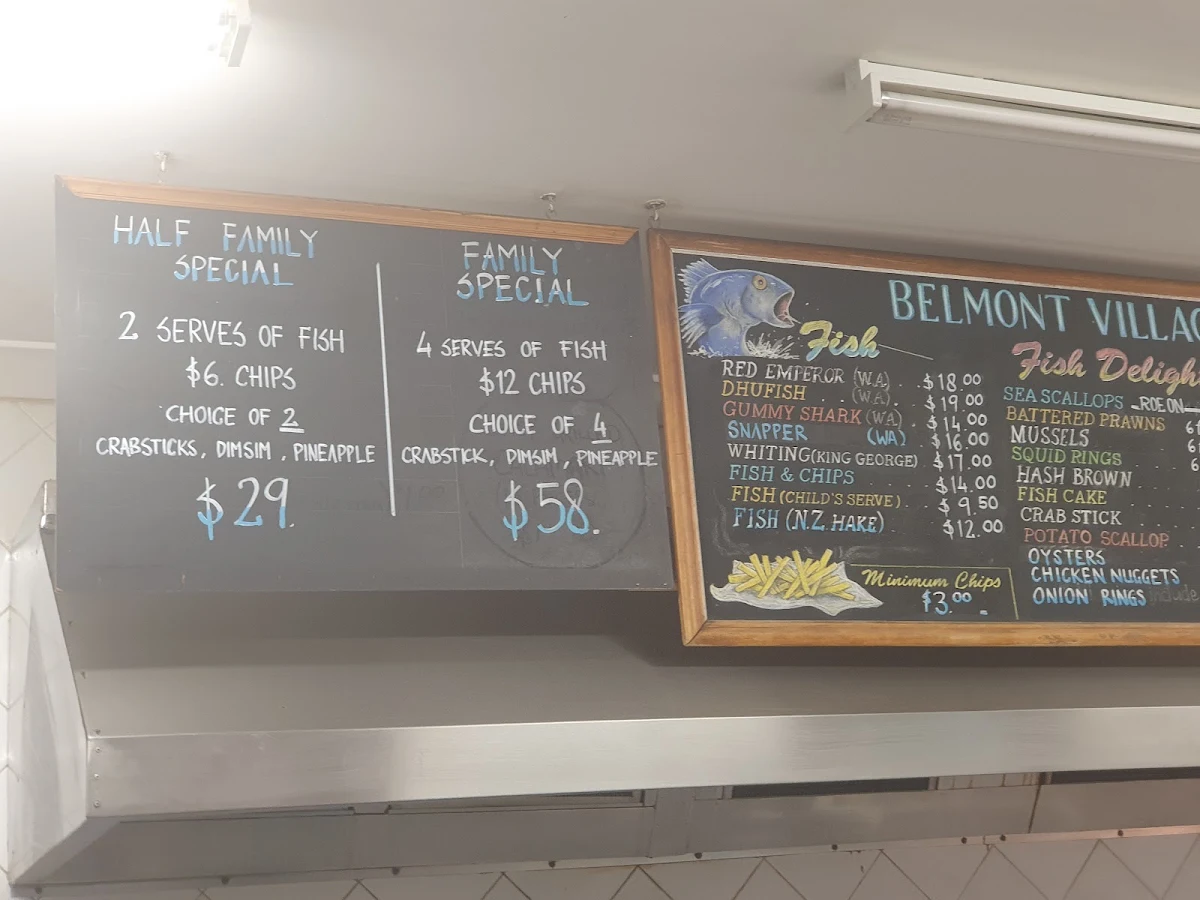 HALF FAMILY
SPECIAL
2 SERVES OF FISH
$6. CHIPS
CHOICE OF 2
CRABSTICKS, DIMSIM, PINEAPPLE
$29.
FAMILY
SPECIAL
4 SERVES OF FISH
$12 CHIPS
CHOICE OF 4
CRABSTICK, DIMSIM, PINEAPPLE
$58.
BELMONT
Fish
RED EMPEROR (W.A) . . $18.00
DHUFISH . . . (W.A) . $19.00
GUMMY SHARK (WA) . $14.00
SNAPPER (WA) . $16.00
WHITING (KING GEORGE) . $17.00
FISH & CHIPS $14.00
FISH (CHILD'S SERVE) . $9.50
FISH (N.Z. HAKE) $12.00
Minimum Chips
$3.00
Fish
SEA SCALLOPS ROE ON
BATTERED PRAWNS
MUSSELS
SQUID RINGS
HASH BROWN
FISH CAKE
CRAB STICK
POTATO SCALLOP
OYSTERS
CHICKEN NUGGETS
ONION RINGS